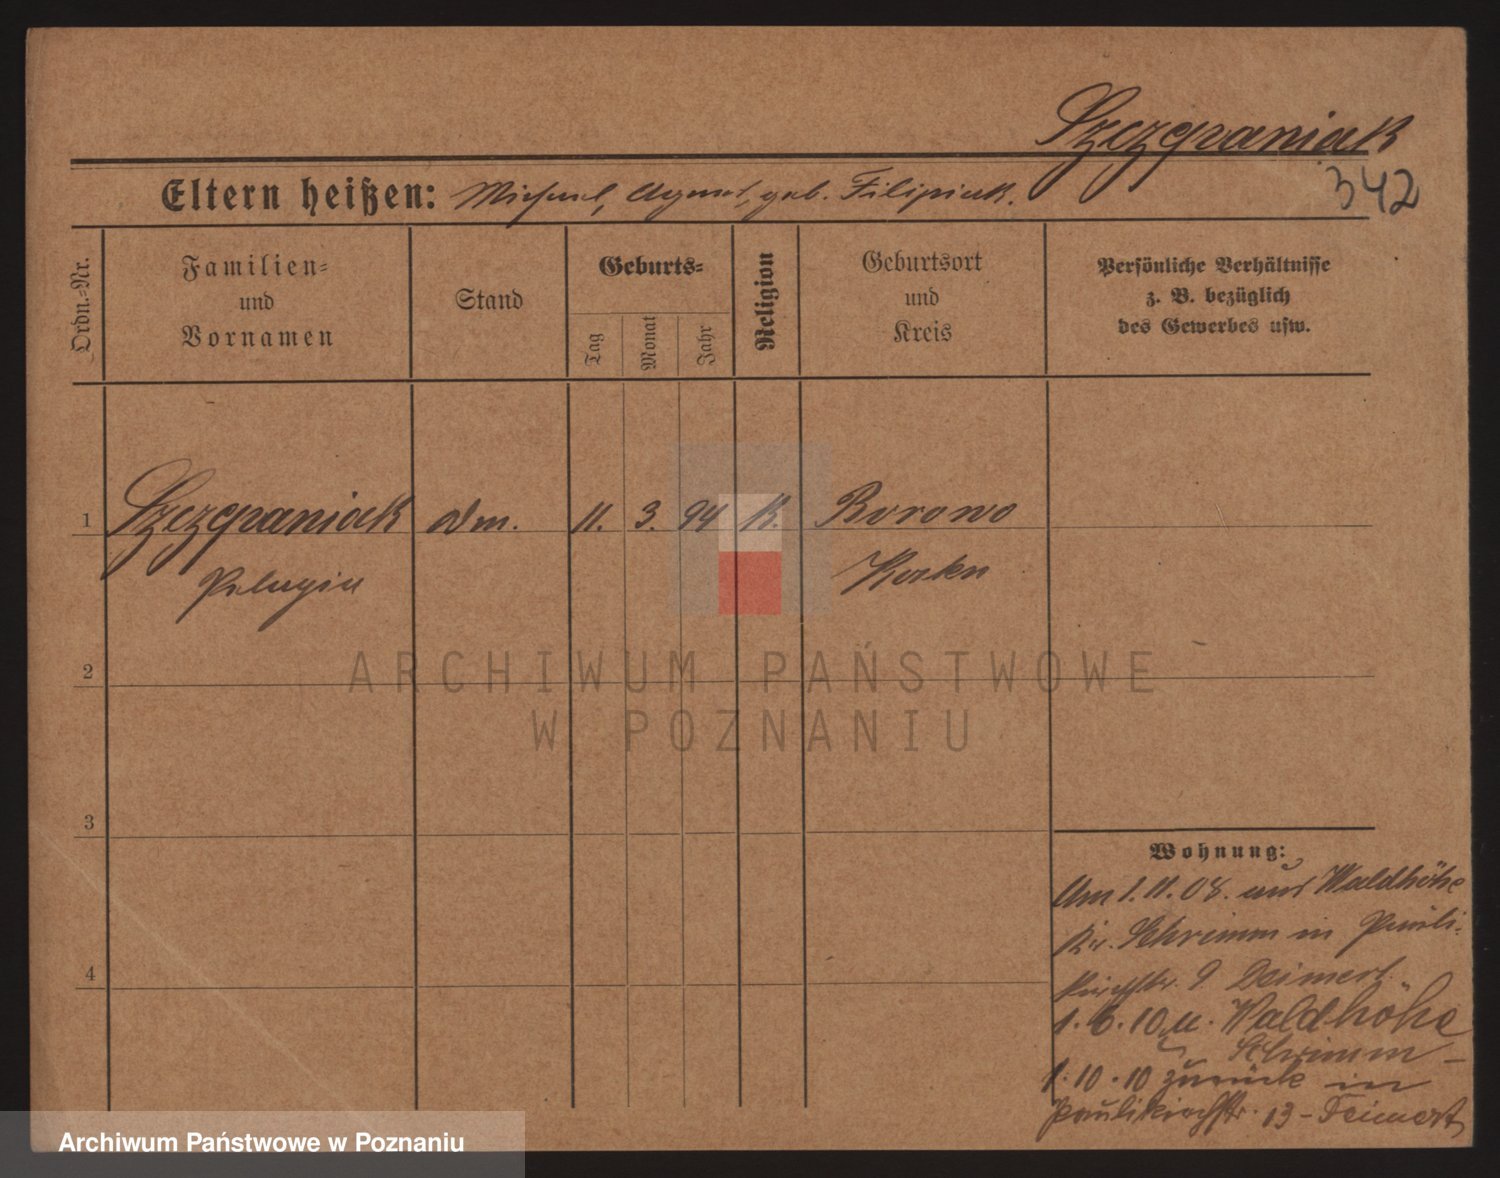 Szczepaniak
342
Eltern heißen: Michael, Agnes, geb. Filipiak.
Ordn.-Nr.
Familien-
und
Vornamen
Stand
Geburts-
Tag
Monat
Jahr
Religion
Geburtsort
und
Kreis
Persönliche Verhältnisse
z. B. bezüglich
des Gewerbes usw.
1 Szczepaniak 11. 3. 94 K. Borowo
Pelagia Kosten
2
3
4
Wohnung:
Am 1.11.08. aus Waldhöhe
Kr. Schrimm in Pauli-
kirchstr. 9
1.6.10 u. Waldhöhe
Schrimm -
1.10.10 zurück in
Paulikirchstr. 13 -
ARCHIWUM PAŃSTWOWE
W POZNANIU
Archiwum Państwowe w Poznaniu